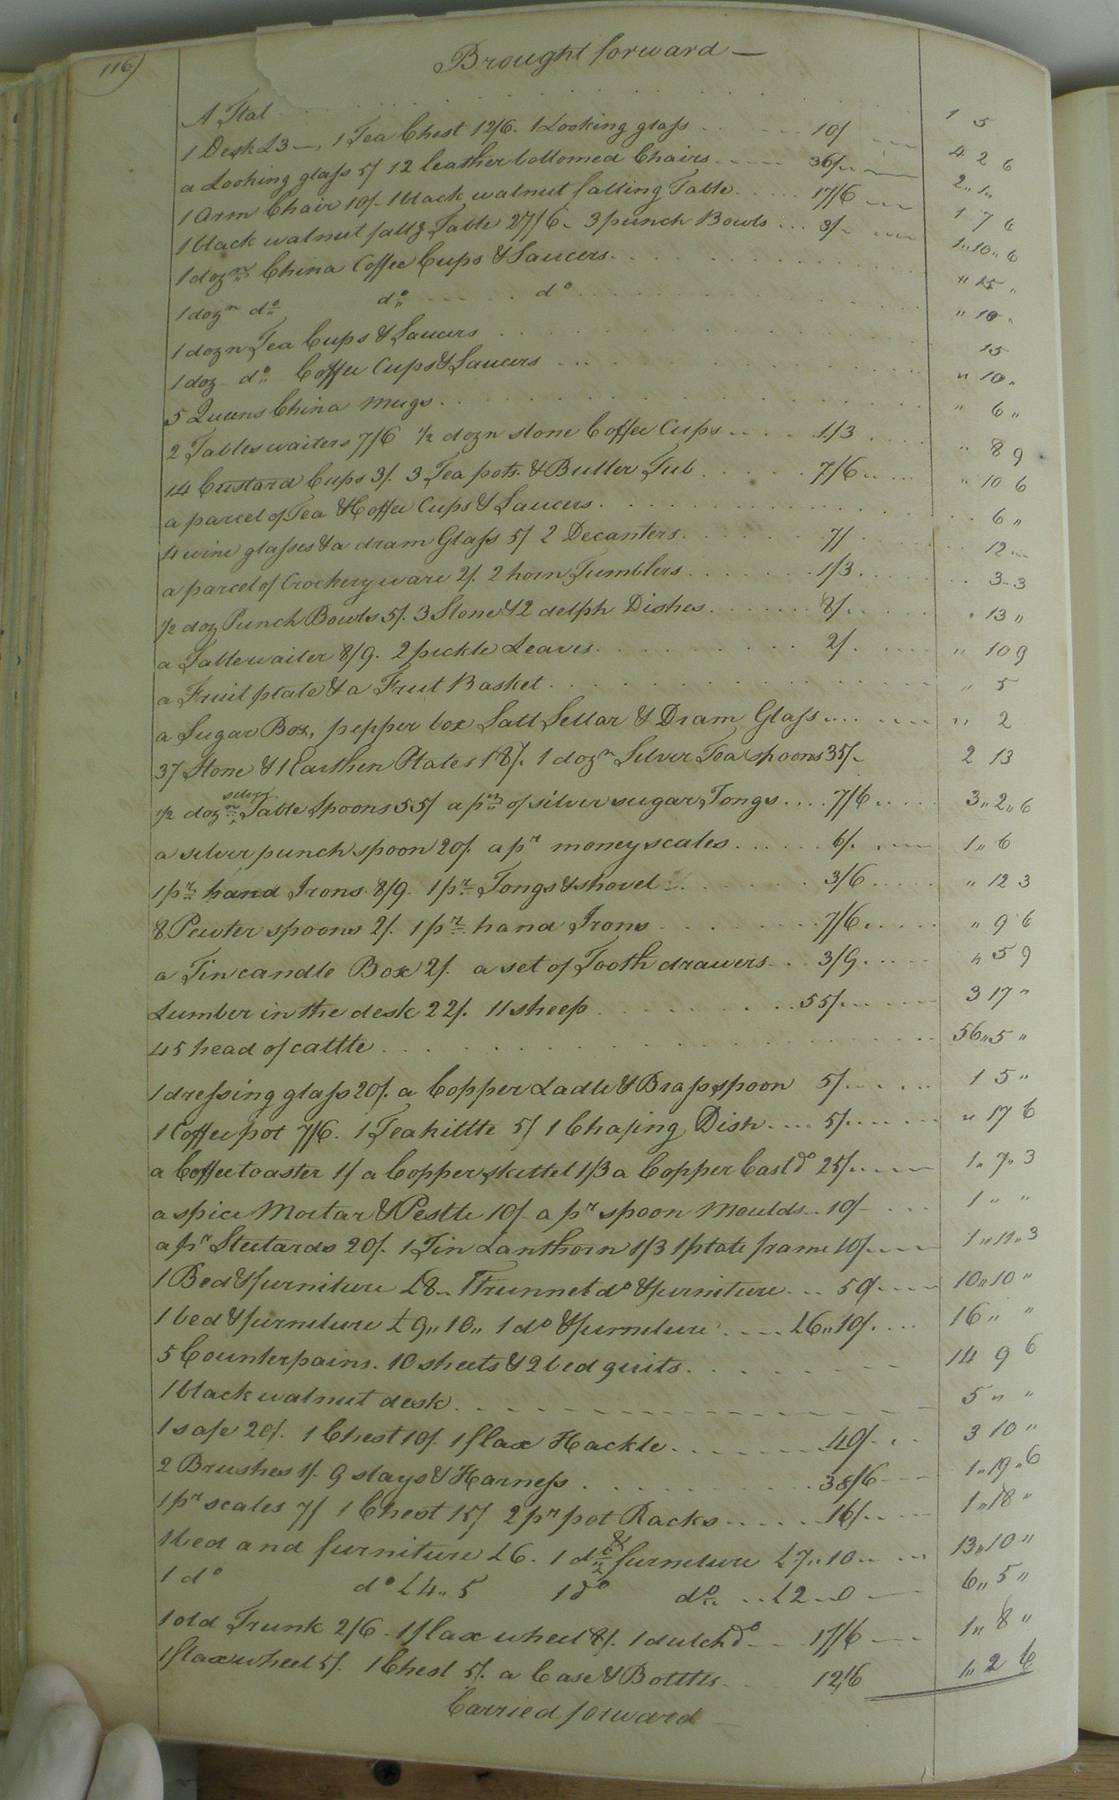 116)
Brought forward —
A Flat 1 5
1 Desk £3—, 1 Tea Chest 12/6. 1 Looking glass 10/ 4 2 6
a Looking glass 5/ 12 leather bottomed Chairs 36/ 2,, 1,,
1 Arm Chair 10/ 1 black walnut falling Table 17/6 1 7 6
1 black walnut fallg Table 27/6. 3 punch Bowls 3/ 1,, 10,, 6
1 dozn China Coffee Cups & Saucers ,, 25 ,,
1 dozn do do do ,, 10 ,,
1 dozn Tea Cups & Saucers 15
1 doz do Coffee Cups & Saucers ,, 10 ,,
5 Queens China Mugs ,, 6 ,,
2 Tables waiters 7/6 1/2 dozn stone Coffee Cups 1/3 ,, 8 9
14 Custard Cups 3/. 3 Tea pots & Butter Tub 7/6 ,, 10 6
a parcel of Tea & Coffee Cups & Saucers 6 ,,
4 wine glasses & a dram Glass 5/ 2 Decanters 7/ 12
a parcel of Crockery ware 2/. 2 horn Tumblers 1/3 3 3
1/2 doz Punch Bowls 5/. 3 Stone & 2 delph Dishes 8/ ,, 13 ,,
a Tablewaiter 8/9. 2 pickle Leaves 2/ ,, 10 9
a Fruit plate & a Fruit Basket ,, 5
a Sugar Box, pepper box Salt Sellar & Dram Glass ,, 2
37 Stone & Earthen Plates 18/. 1 dozn Silver Tea spoons 35/ 2 13
1/2 dozn silver Table Spoons 55/ a pr of silver sugar Tongs 7/6 3,, 2,, 6
a silver punch spoon 20/. a pr money scales 6/ 1,, 6
1 pr hand Irons 8/9. 1 pr Tongs & shovel 3/6 ,, 12 3
8 Pewter spoons 2/. 1 pr hand Irons 7/6 ,, 9 6
a Tin candle Box 2/. a set of Tooth drawers 3/9 ,, 5 9
Lumber in the desk 22/. 11 sheep 55/ 3 17 ,,
45 head of cattle 56,, 5 ,,
1 dressing glass 20/. a Copper Ladle & Brass spoon 5/ 1 5 ,,
1 Coffee pot 7/6. 1 Teakittle 5/ 1 Chafing Dish 5/ ,, 17 6
a Coffee toaster 1/ a Copper skittel 1/3 a Copper Cast do 25/ 1,, 7,, 3
a spice Mortar & Pestle 10/ a pr spoon Moulds 10/ 1 ,, ,,
a pr Steetards 20/. 1 Tin Lanthorn 1/3 1 plate frame 10/ 1,, 11,, 3
1 Bed & furniture £8.. 1 Trunnel do & furniture 50/ 10,, 10 ,,
1 bed & furniture £9,, 10,, 1 do & furniture £6,, 10/ 16 ,, ,,
5 Counterpains. 10 sheets & 2 bed quits 14 9 6
1 black walnut desk 5 ,, ,,
1 safe 20/. 1 Chest 10/. 1 flax Hackle 40/ 3 10 ,,
2 Brushes 1/. 9 stays & Harness 38/6 1,, 19,, 6
1 pr scales 7/ 1 Chest 15/ 2 pr pot Racks 16/ 1,, 18 ,,
1 bed and furniture £6. 1 do & furniture £7,, 10 13,, 10 ,,
1 do do £4,, 5 1 do do £2,, 0 6,, 5 ,,
1 old Trunk 2/6 1 flax wheel 8/. 1 dutch do 17/6 1,, 8 ,,
1 flax wheel 5/. 1 Chest 5/. a Case & Bottles 12/6 1,, 2 6
Carried forward —